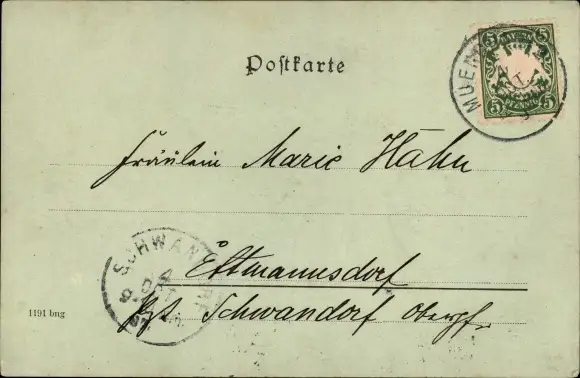 Postkarte
BAYERN
5 5
PFENNIG
MUEN
Fräulein Marie Hahn
Ettmannsdorf
Pst. Schwandorf Oberpf.
SCHWAN
1191 bng